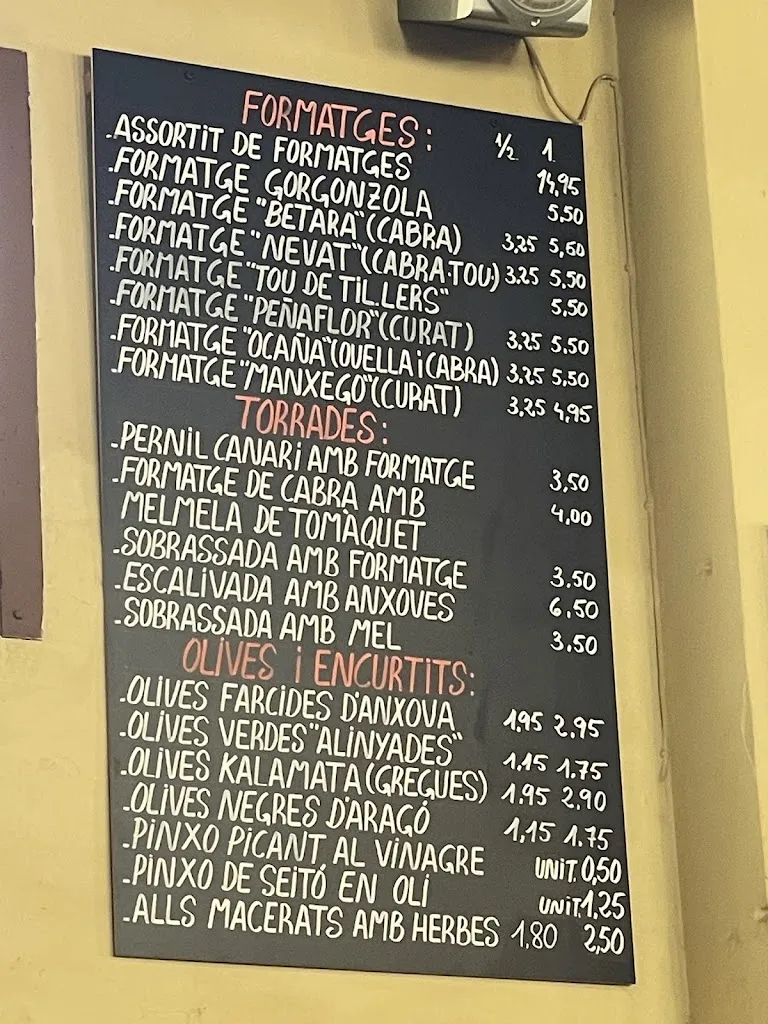 FORMATGES: ½ 1
.ASSORTiT DE FORMATGES 14,95
.FORMATGE GORGONZOLA 5,50
.FORMATGE "BETARA"(CABRA) 3,25 5,60
.FORMATGE "NEVAT"(CABRA.TOU) 3.25 5,50
.FORMATGE "TOU DE TIL.LERS" 5,50
.FORMATGE "PEÑAFLOR"(CURAT) 3.25 5.50
.FORMATGE "OCAÑA"(OVELLA i CABRA) 3,25 5,50
.FORMATGE "MANXEGO"(CURAT) 3,25 4,95
TORRADES:
.PERNIL CANARi AMB FORMATGE 3,50
.FORMATGE DE CABRA AMB 4,00
MELMELA DE TOMÀQUET
.SOBRASSADA AMB FORMATGE 3.50
.ESCALiVADA AMB ANXOVES 6,50
.SOBRASSADA AMB MEL 3.50
OLIVES i ENCURTITS:
.OLIVES FARCIDES D'ANXOVA 1,95 2.95
.OLIVES VERDES "ALINYADES" 1,15 1.75
.OLIVES KALAMATA (GREGUES) 1.95 2,90
.OLIVES NEGRES D'ARAGÓ 1,15 1.75
.PiNXO PiCANT AL ViNAGRE UNiT. 0,50
.PiNXO DE SEiTÓ EN OLi UNiT. 1,25
.ALLS MACERATS AMB HERBES 1,80 2,50